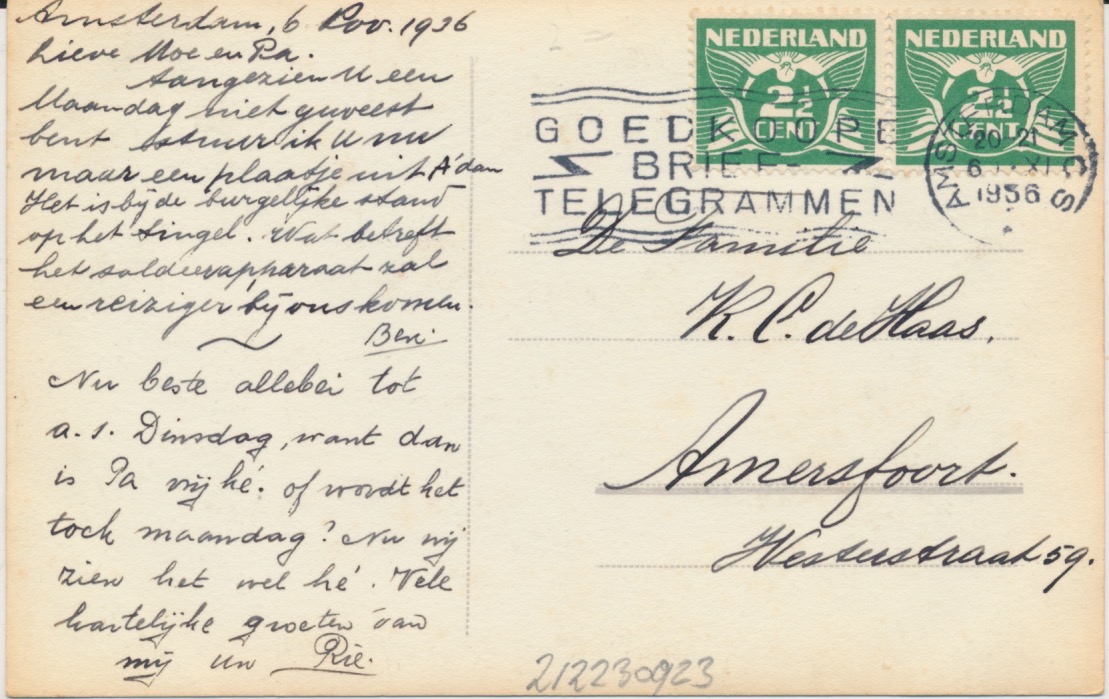 Amsterdam, 6 Nov. 1936
Lieve Moe en Pa.
Aangezien U een
Maandag niet geweest
bent stuur ik U nu
maar een plaatje uit A'dam
Het is bij de burgelijke stand
op het Singel. Wat betreft
het soldeerapparaat zal
een reiziger bij ons komen.
Ben
Nu beste allebei tot
a.s. Dinsdag, want dan
is Pa vrij hé. of wordt het
toch maandag? Nu wij
zien het wel hé. Vele
hartelijke groeten van
mij Uw Rie.
NEDERLAND
2½
CENT
NEDERLAND
2½
CENT
GOEDKOOPE
BRIEF-
TELEGRAMMEN
AMSTERDAM CS
20 21
6 XI
1936
De Familie
K. C. de Haas,
Amersfoort.
Westerstraat 59.
212230923